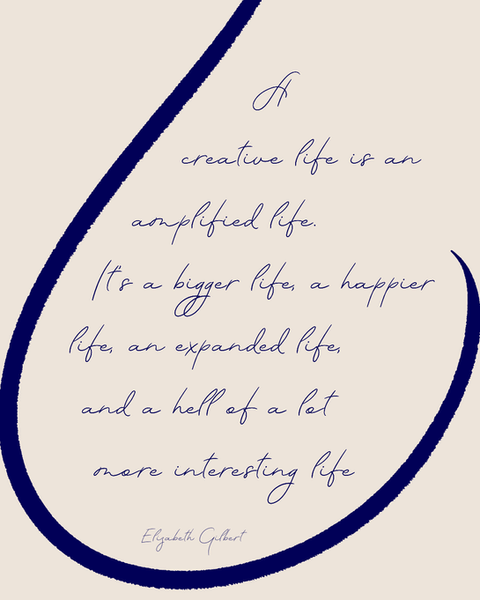 A
creative life is an
amplified life.
It's a bigger life, a happier
life, an expanded life,
and a hell of a lot
more interesting life
Elizabeth Gilbert